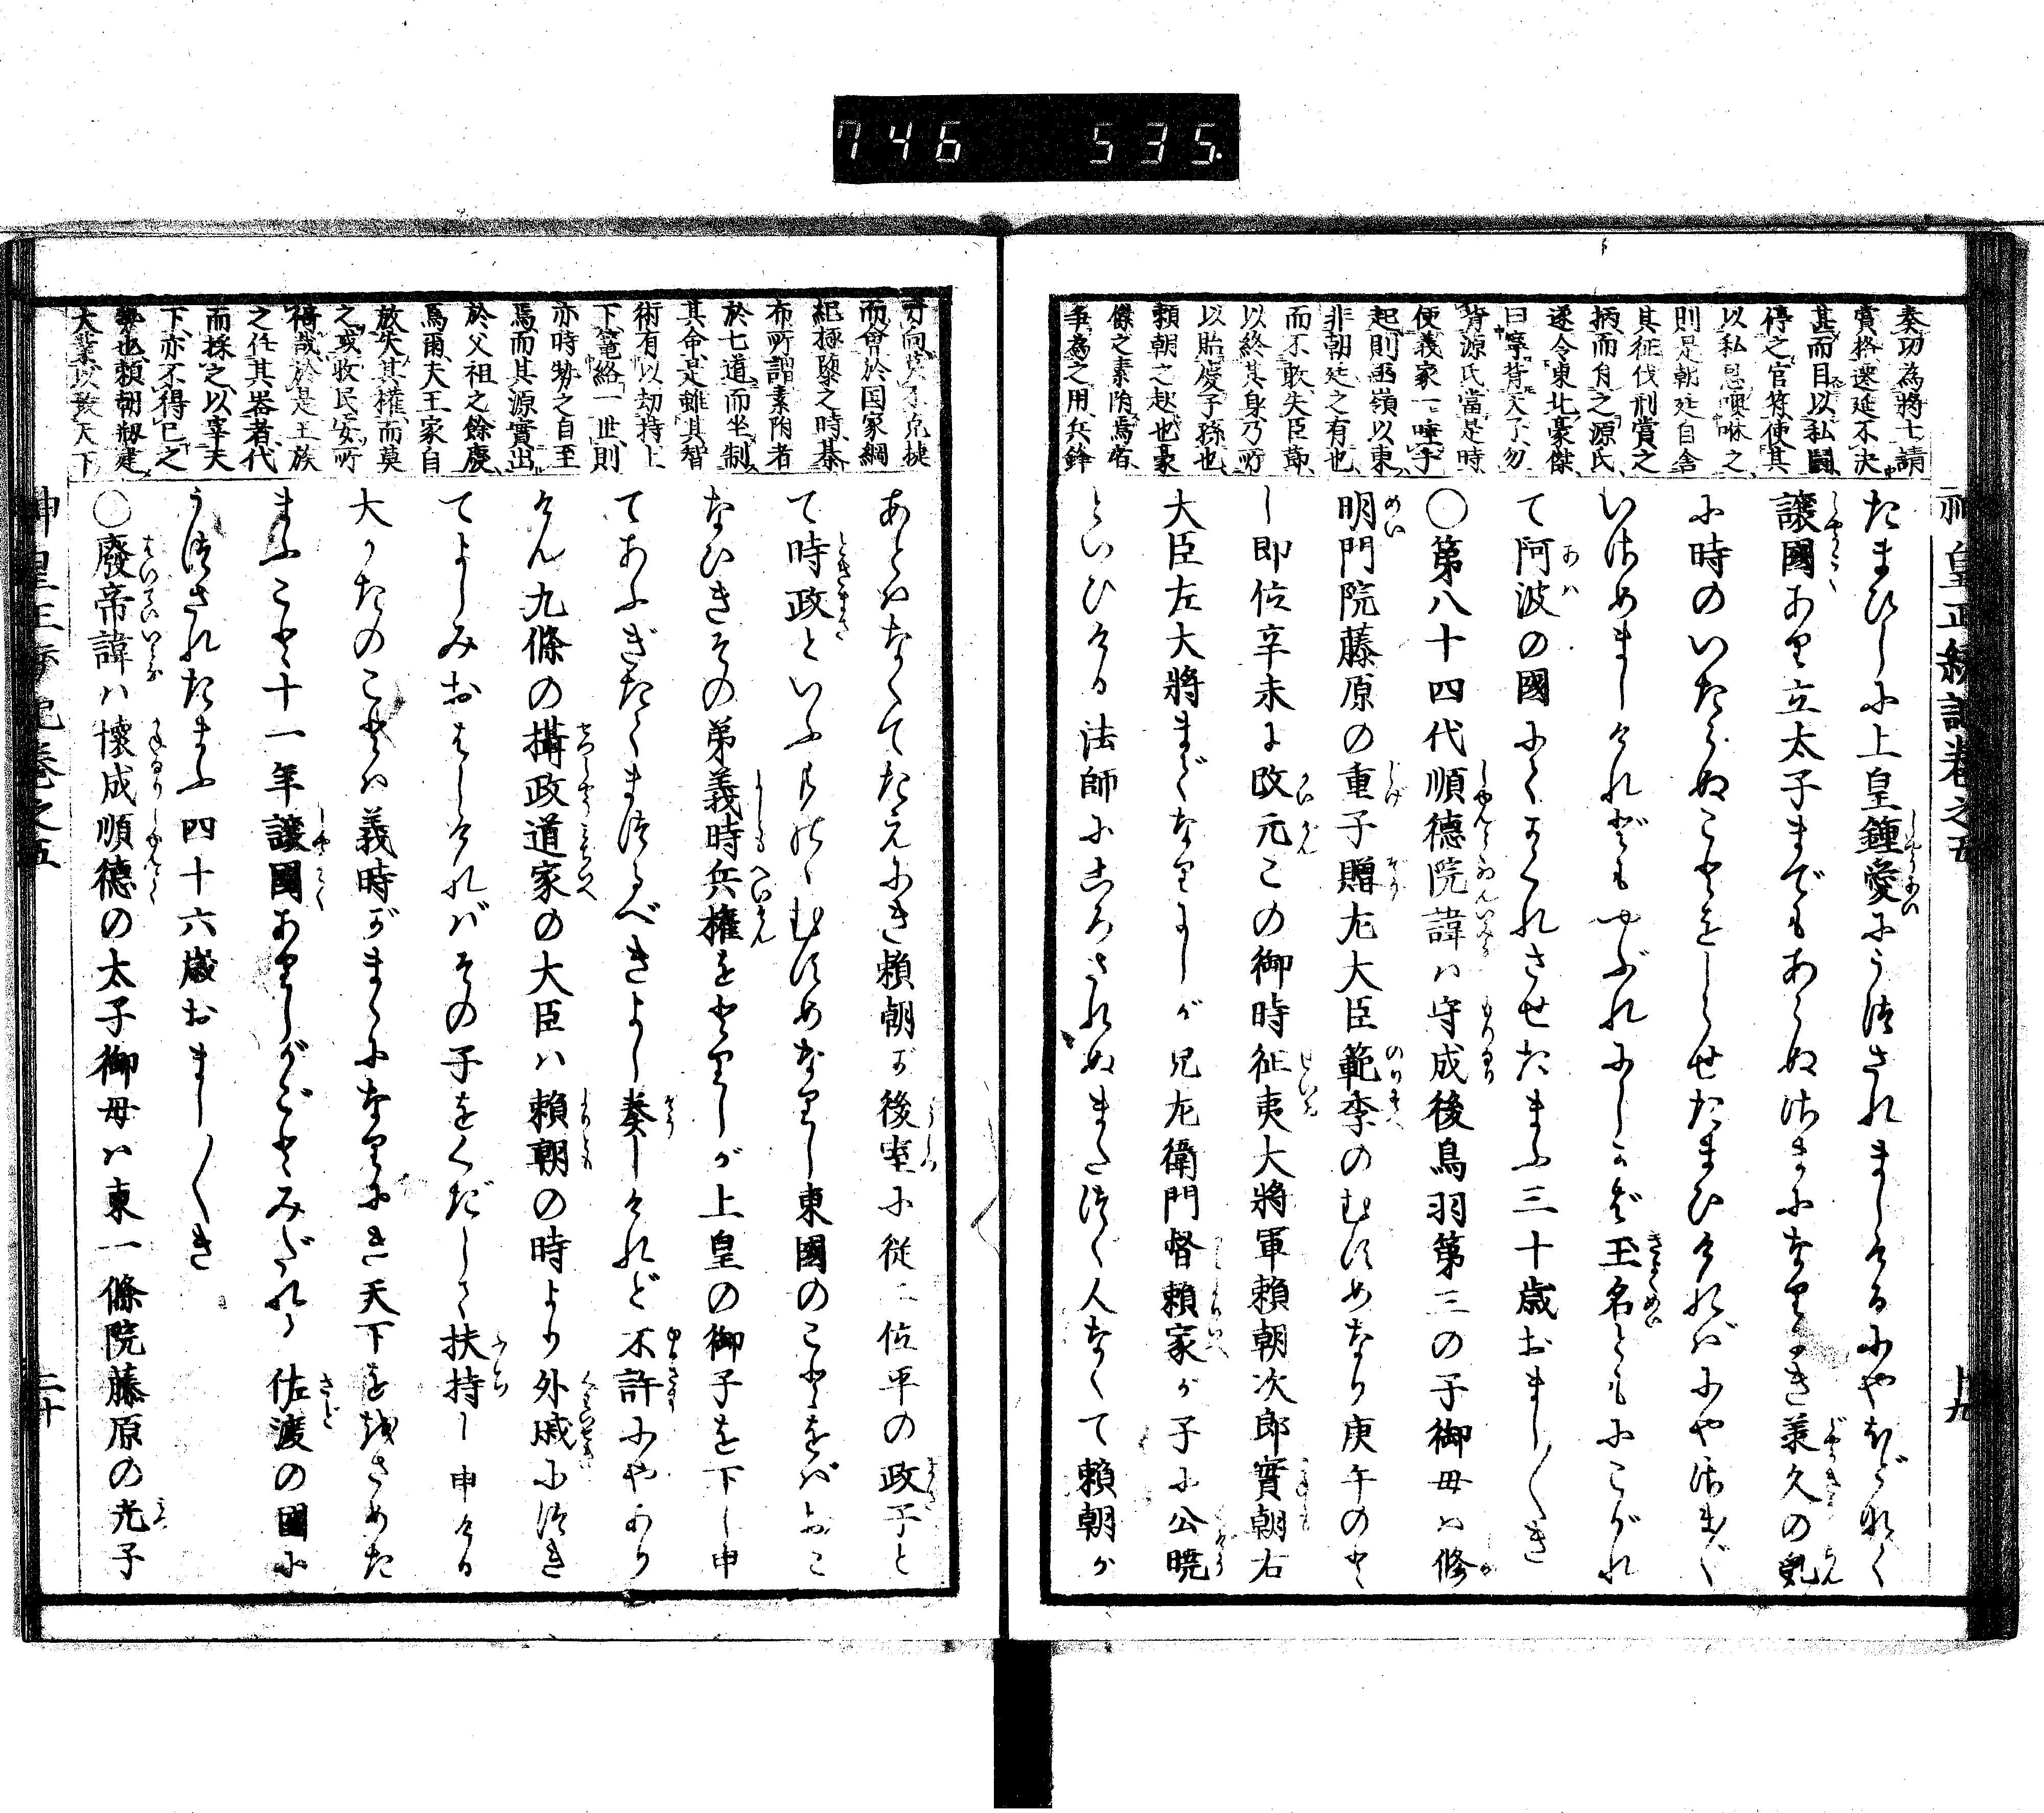 746 535.
神皇正統記巻之五
十九
奏功為將士請
賞格遷延不決
甚而目以私鬪
停之官符使其
以私恩噢咻之
則是朝廷自舎
其征伐刑賞之
柄而負之源氏
遂令東北豪傑
曰寧背天子勿
背源氏當是時
使義家一唾手
起則函嶺以東
非朝廷之有也
而不敢失臣節
以終其身乃所
以貽慶子孫也
頼朝之起也豪
傑之素附焉者
争為之用兵鋒
たまひしに上皇鍾愛にうつされましけるにやほどなく
譲國あり立太子までもあらぬさまになりにき兼久の亂
に時のいたらぬことをしらせたまひければにやさまざ
いさめましけれどもやぶれにしかば玉名ともにこがれ
て阿波の國にてかくれさせたまふ三十歳おまし〳〵き
○第八十四代順徳院諱ハ守成後鳥羽第三の子御母ハ修
明門院藤原の重子贈左大臣範季のむすめなり庚午のと
し即位辛未に改元この御時征夷大將軍頼朝次郎實朝右
大臣左大將までなりにしが兄左衛門督頼家が子に公曉
といひける法師にころされぬまたつぐ人なくて頼朝が
方向莫不克捷
而會於国家綱
紀極隳之時棊
布所謂素附者
於七道而坐制
其命是雖其智
術有以劫持上
下篭絡一世則
亦時勢之自至
焉而其源實出
於父祖之餘慶
焉爾夫王家自
放失其權而莫
之或收民安所
得哉於是王族
之任其器者代
而採之以宰天
下亦不得已之
勢也頼朝剏建
大業以致天下
あとハなくてたえにき頼朝が後室に従二位平の政子と
て時政といふものゝむすめなりし東國のことをばおこ
なひきその弟義時兵權をとりしが上皇の御子を下し申
てあふぎたてまつるべきよし奏しけれど不許にやあり
けん九條の攝政道家の大臣ハ頼朝の時より外戚につき
てよしみおはしければその子をくだして扶持し申ける
大かたのことハ義時がまゝになりにき天下を治さめた
まふこと十一年譲國ありしがごとみだれて佐渡の國に
うつされたまふ四十六歳おまし〳〵き
○廢帝諱ハ懐成順徳の太子御母ハ東一條院藤原の充子
神皇正統記巻之五
二十